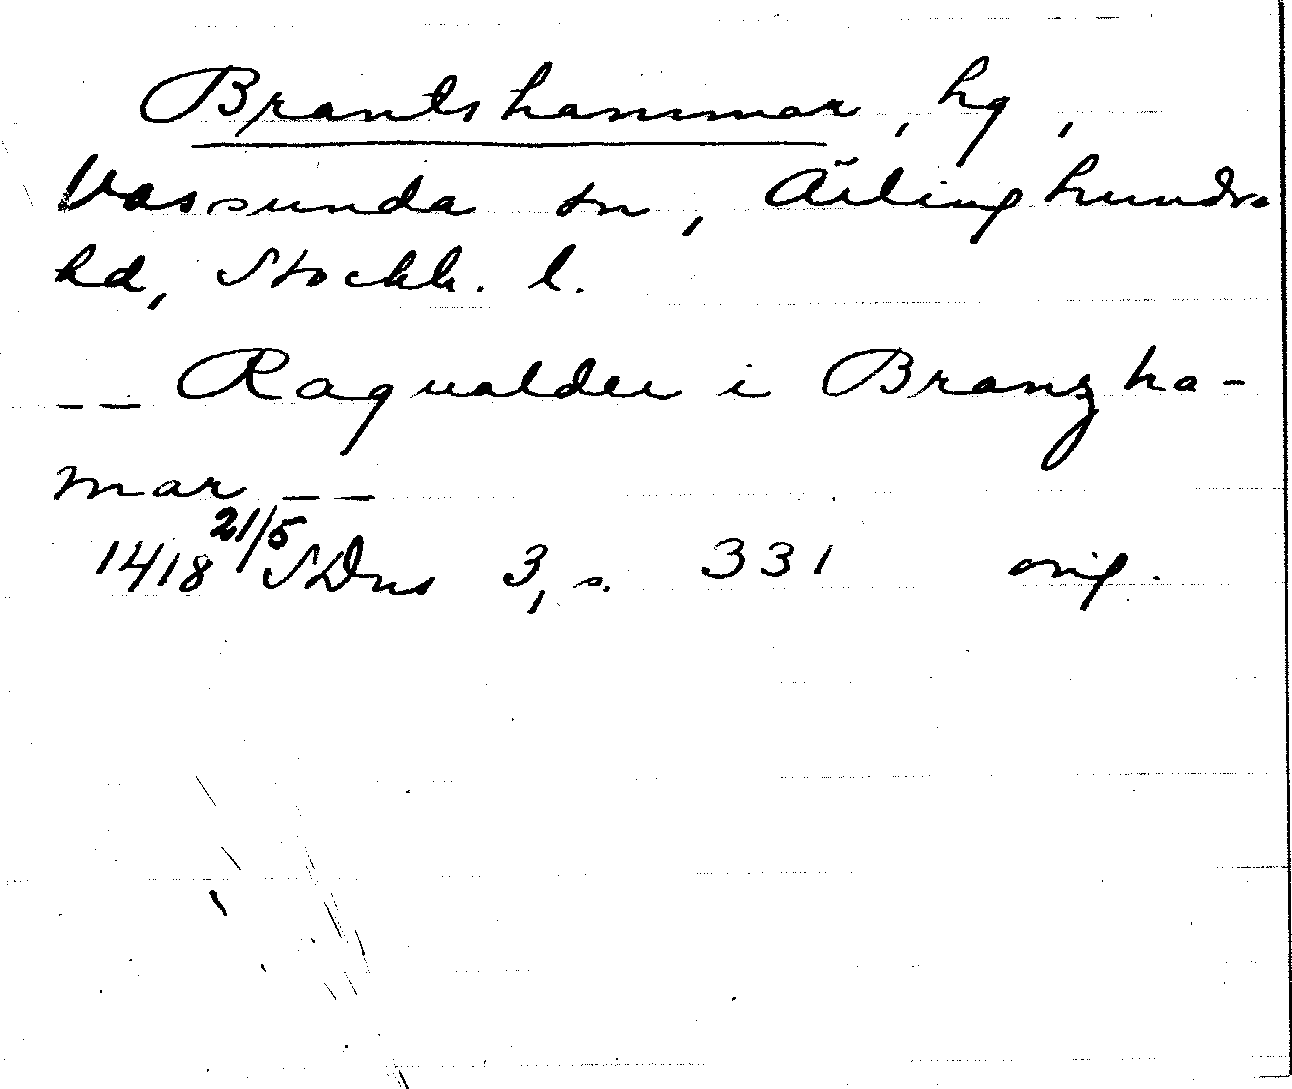 Brantshammar, hg,
Vassunda sn, Ärlinghundra
hd, Stockh. l.
-- Ragualder i Branzha-
mar --
1418 21/5 SDns 3, s. 331 orig.